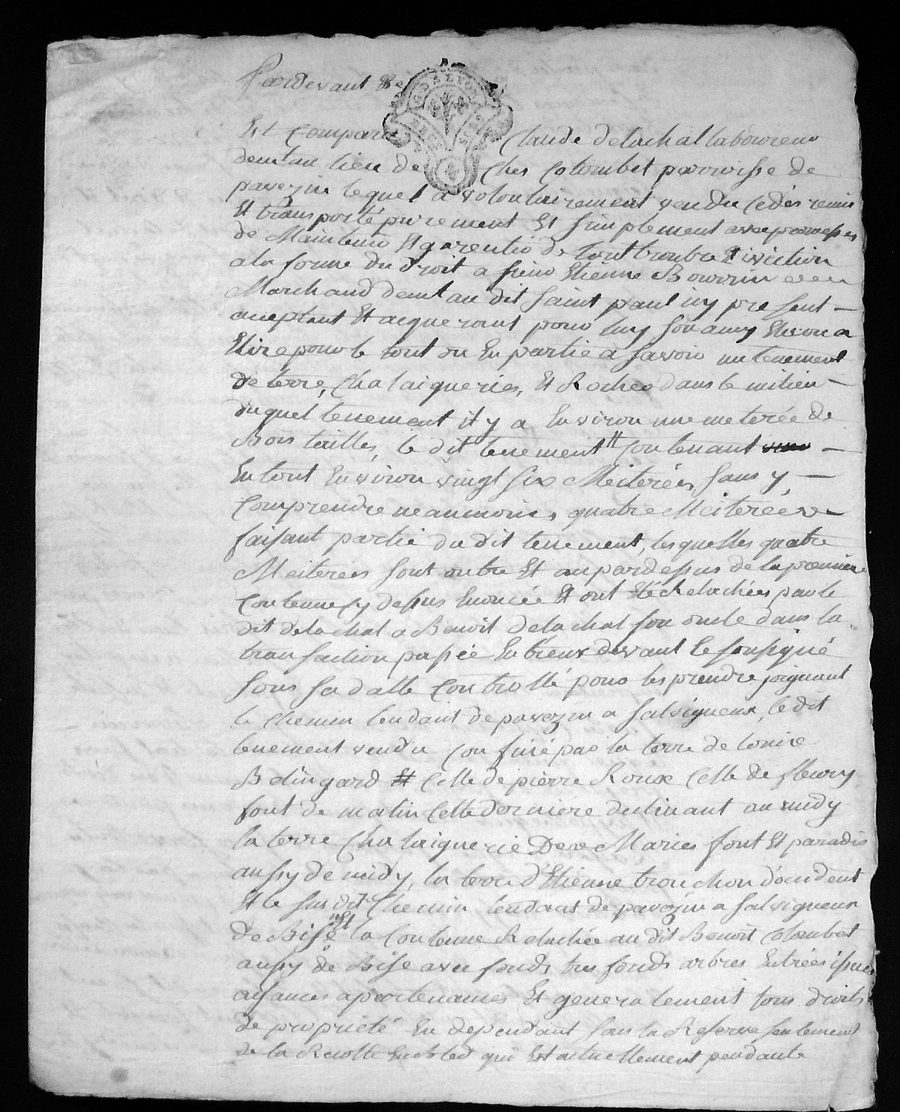 Pardevant &e
Et Comparu Claude delachal laboureur
demt au lieu de Ches Colombet parroisse de
pavezin lequel a volontairement vendu cedés remis
Et transporté purement Et simplement avec promesses
de Maintenir Et garentir de tout trouble Eviction
a la forme du droit a sieur Etienne Bourrin
Marchand demt au dit saint paul icy present
acceptant Et acquerant pour luy son amy Elu ou a
Elire pour le tout ou En partie a savoir un tenement
de terre, Chataigneries, Et Rochers dans le milieu
duquel tenement il y a Environ une meterée de
Bois taillés, le dit tenement Contenant
En tout Environ vingt six Meiterées sans y
Comprendre neanmoins quatre Meiterées
faisant partie du dit tenement, lesquelles quatre
Meiterées sont outre Et au pardessus de la premiere
Contenue cy dessus Enoncée Et ont Eté Relachées par le
dit delachal a Benoit delachal son oncle dans la
transaction passée Entr'eux devant le soussigné
sous sa datte Controllé pour les prendre joignant
le Chemin tendant de pavezin a salvigneux, le dit
tenement vendu Confiné par la terre de
Bolingard Et Celle de pierre Roux Celle de fleury
font de matin Cette derniere declinant au midy
la terre Chataignerie Des Maries font Et paradis
aussy de midy, la terre d'Etienne trouchon d'occident
Et le sus dit Chemin tendant de pavezin a salvigneux
de Bise Et la Contenue Relachée au dit Benoit Colombet
aussy de Bise avec fonds tres fonds arbres Entrées issues
aisances apartenances Et generalement tous droits
de propriété En dependant sous la Reserve seulement
de la Recolte En bled qui Est actuellement pendante